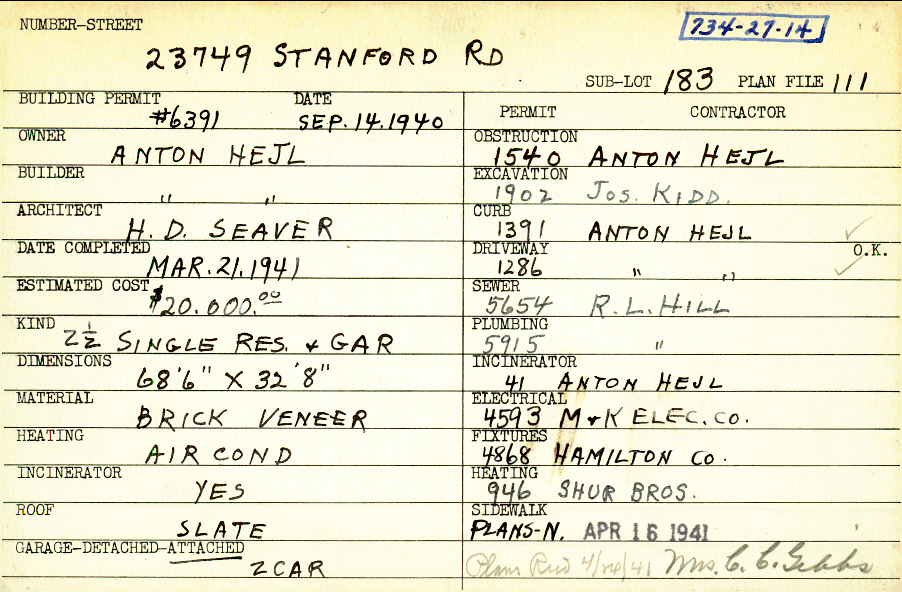 NUMBER-STREET
734-27-14
23749 STANFORD RD
SUB-LOT 183 PLAN FILE 111
BUILDING PERMIT DATE
#6391 SEP. 14. 1940
OWNER
ANTON HEJL
BUILDER
" "
ARCHITECT
H. D. SEAVER
DATE COMPLETED
MAR. 21. 1941
ESTIMATED COST
$20.000.00
KIND
2½ SINGLE RES. & GAR
DIMENSIONS
68'6" X 32'8"
MATERIAL
BRICK VENEER
HEATING
AIR COND
INCINERATOR
YES
ROOF
SLATE
GARAGE-DETACHED-ATTACHED
2 CAR
PERMIT CONTRACTOR
OBSTRUCTION
1540 ANTON HEJL
EXCAVATION
1902 JOS. KIDD.
CURB
1391 ANTON HEJL
DRIVEWAY O.K.
1286 " "
SEWER
5654 R. L. HILL
PLUMBING
5915 "
INCINERATOR
41 ANTON HEJL
ELECTRICAL
4593 M & K ELEC. CO.
FIXTURES
4868 HAMILTON CO.
HEATING
946 SHUR BROS.
SIDEWALK
PLANS-N. APR 16 1941
Plans 41 Mrs. C. C. Gibbs